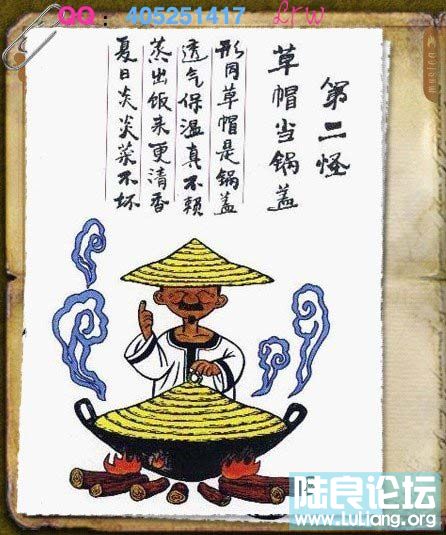 QQ：405251417 Lrw
第二怪
草帽当锅盖
形同草帽是锅盖
透气保温真不赖
蒸出饭来更清香
夏日炎炎菜不坏
陆良论坛
www.LuLiang.org